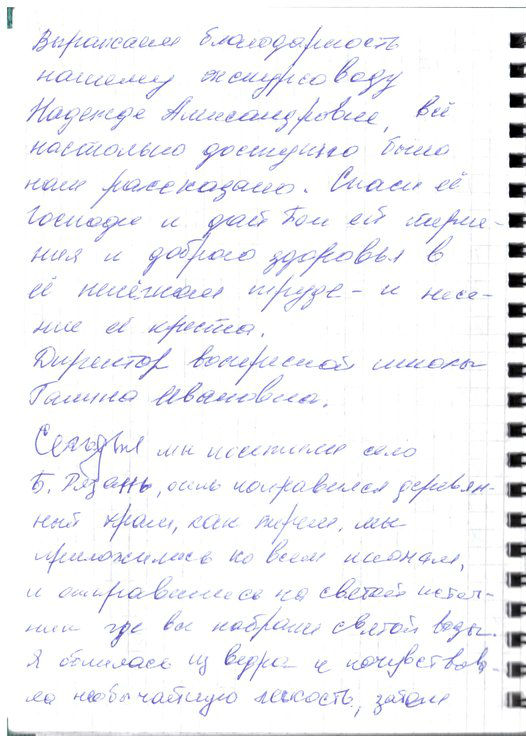 Выражаем благодарность
нашему экскурсоводу
Надежде Александровне, всё
настолько доступно было
нам рассказано. Спаси её
Господи и дай Бог ей терпе-
ния и доброго здоровья в
её нелёгком труде - и несе-
ние её креста.
Директор воскресной школы
Галина Ивановна.
Сегодня мы посетили село
Б. Рязань, очень понравился деревян-
ный храм, как терем, мы
приложились ко всем иконам,
и отправились на святой источ-
ник где вы набрали святой воды.
Я облилась из ведра и почувствова-
ла необычайную лёгкость, затем